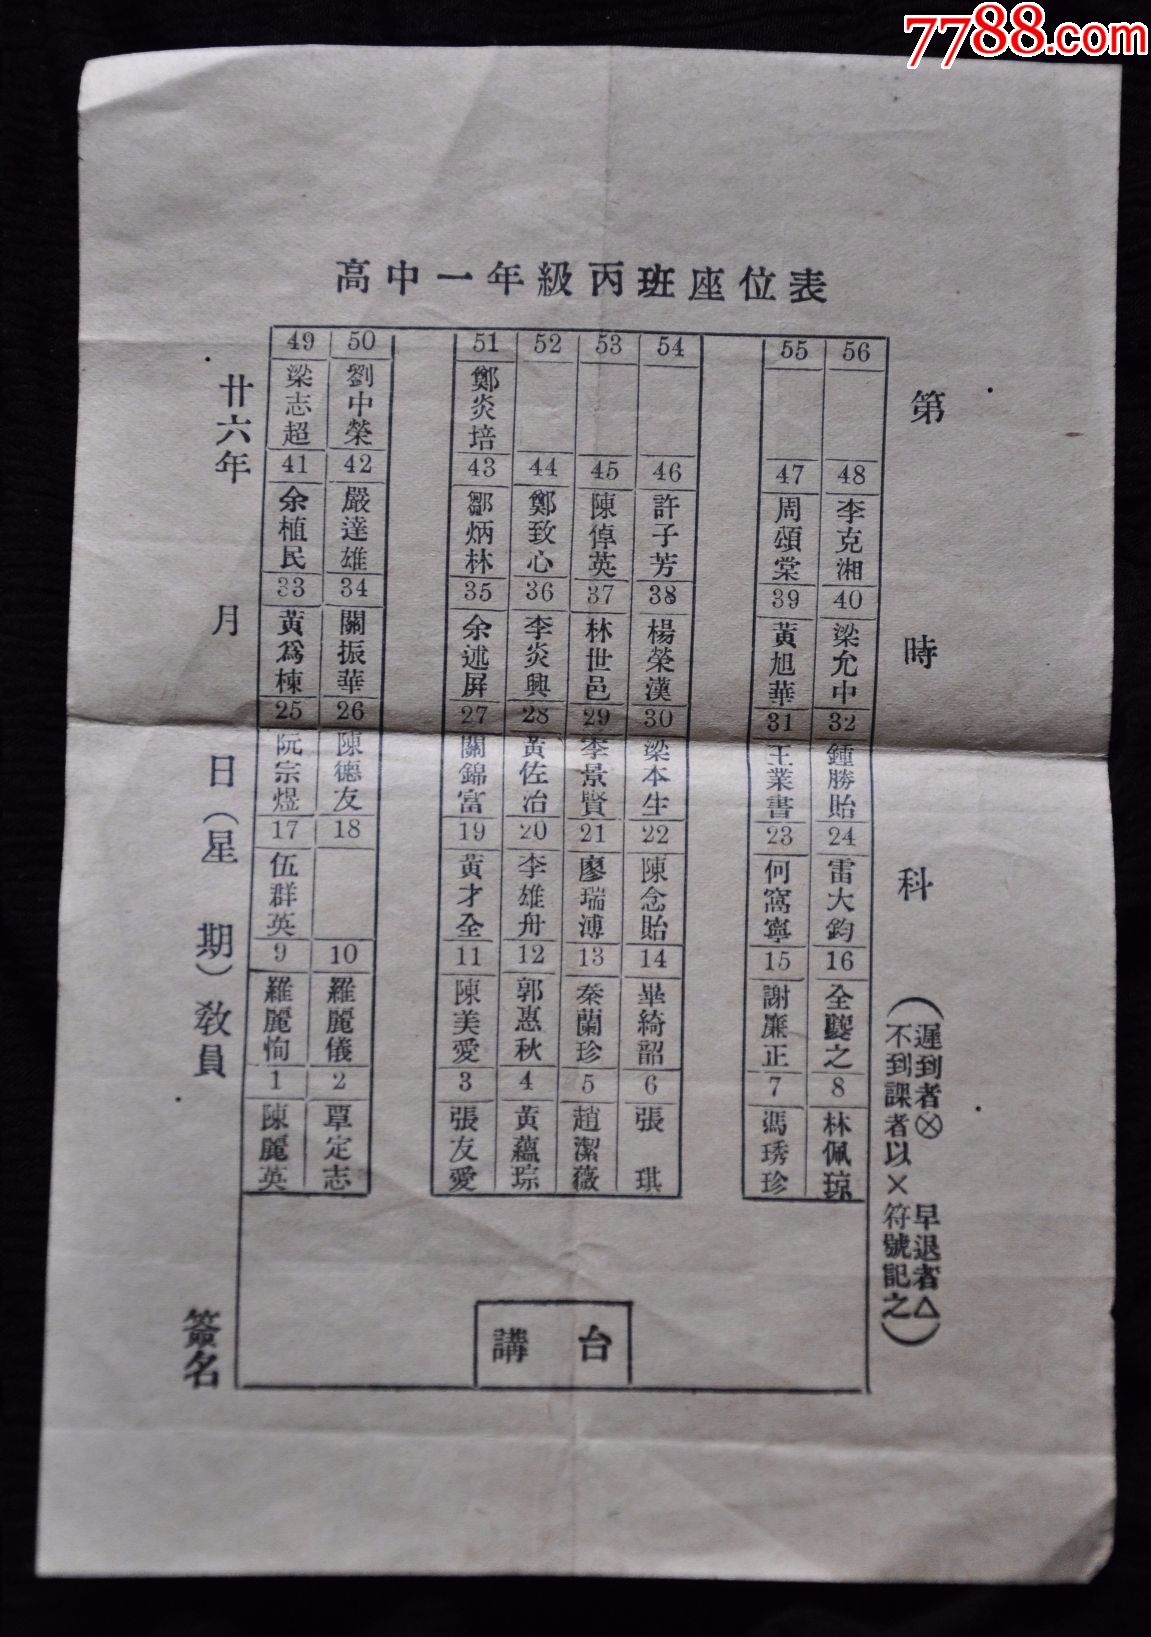 7788.com
高中一年級丙班座位表
49 50 51 52 53 54 55 56
梁志超 劉中榮 鄭炎培
41 42 43 44 45 46 47 48
余植民 嚴達雄 鄒炳林 鄭致心 陳倬英 許子芳 周頌棠 李克湘
33 34 35 36 37 38 39 40
黃爲棟 關振華 余述屏 李炎興 林世邑 楊榮漢 黃旭華 梁允中
25 26 27 28 29 30 31 32
阮宗煜 陳德友 關錦富 黃佐冶 李景賢 梁本生 王業書 鍾勝貽
17 18 19 20 21 22 23 24
伍群英 黃才全 李雄舟 廖瑞溥 陳念貽 何窩寧 雷大鈞
9 10 11 12 13 14 15 16
羅麗恂 羅麗儀 陳美愛 郭惠秋 秦蘭珍 畢綺韶 謝廉正 全之
1 2 3 4 5 6 7 8
陳麗英 覃定志 張友愛 黃蘊琮 趙潔薇 張琪 馮琇珍 林佩琼
講台
第 時 科
(遲到者⊗ 早退者△
不到課者以×符號記之)
廿六年 月 日(星期)教員 簽名